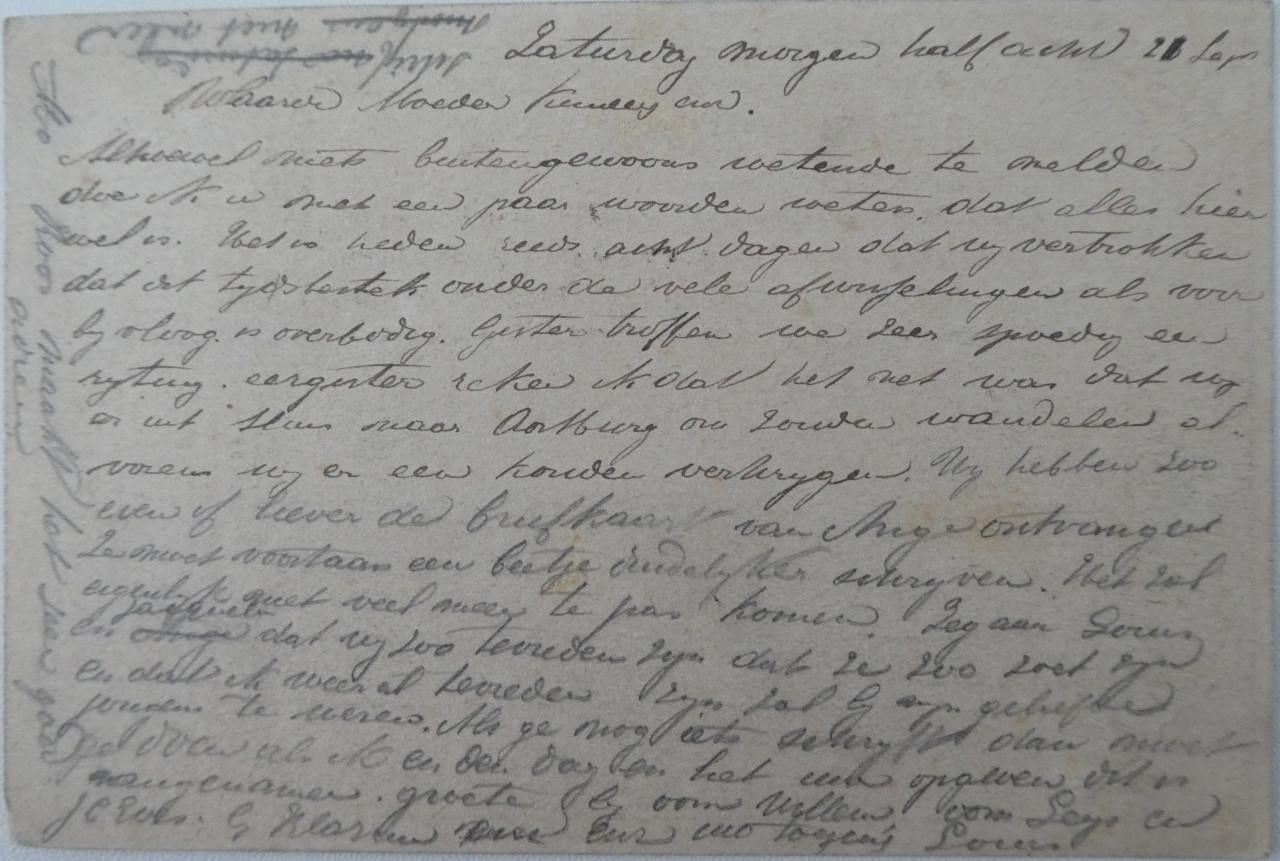 Zaturdag morgen half acht 21 Sep
Waarde Moeder Kinders enz.
Alhoewel niets buitengewoons wetende te melden
doe ik u met een paar woorden weten, dat alles hier
wel is. Het is heden reeds acht dagen dat wy vertrokken
dat dit tydsbestek onder de vele afwisselingen als voor
by vloog is overbodig. Gister troffen we zeer spoedig een
rytuig. eergister reken ik dat het net was dat wy
er uit Sluis naar Aardenburg om zouden wandelen al
vorens wy er een konden verkrygen. Wy hebben zoo
even of liever de briefkaart van Ange ontvangen
Ze moet voortaan een beetje duidelyker schryven. Het zal
eigenlyk niet veel meer te pas komen. Zeg aan Louis
en dat wy zoo tevreden zyn dat ze zoo zoet zyn
en dat ik weer al tevreden zyn zal by myn geliefde
jondens te wezen. Als ge nog iets schryft dan moet
ge doen als ik en den dag en het uur opgeven dit is
aangenamer. groete by oom Willem, oom Seys en
by en
maakt het zeer goed